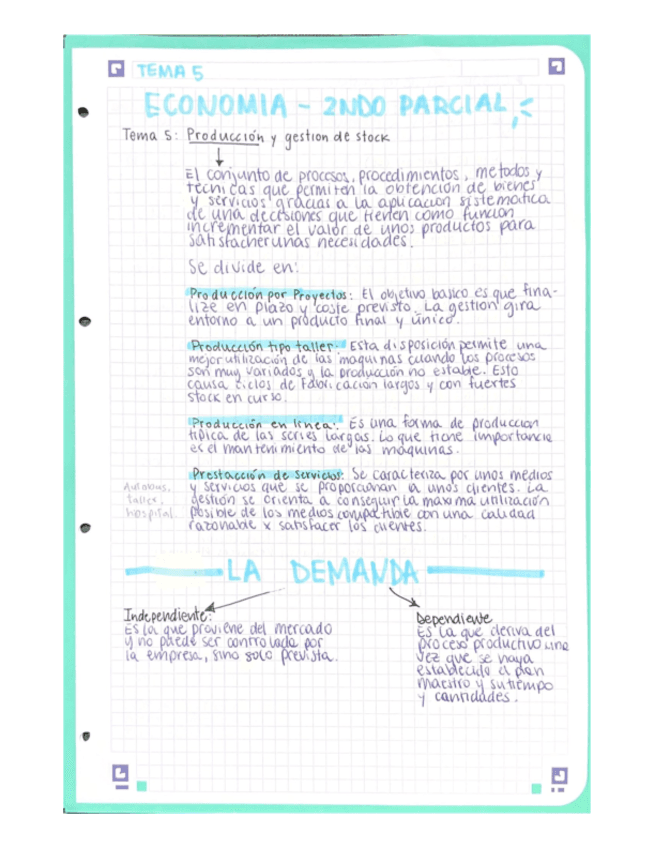 TEMA 5
ECONOMIA - 2NDO PARCIAL
Tema 5: Producción y gestion de stock
El conjunto de procesos, procedimientos, metodos y
tecnicas que permiten la obtención de bienes
y servicios gracias a la aplicacion sistematica
de una decisiones que tienen como funcion
incrementar el valor de unos productos para
satisfacer unas necesidades.
Se divide en:
Producción por Proyectos: El objetivo basico es que fina-
lize en plazo y coste previsto. La gestion gira
entorno a un producto final y único.
Producción tipo taller: Esta disposición permite una
mejor utilización de las maquinas cuando los procesos
son muy variados y la producción no estable. Esto
causa ciclos de fabricación largos y con fuertes
stock en curso.
Producción en linea: Es una forma de produccion
tipica de las series largas. Lo que tiene importancia
es el mantenimiento de las máquinas.
Prestacción de servicios: Se caracteriza por unos medios
y servicios que se proporcionan a unos clientes. La
gestión se orienta a conseguir la maxima utilización
posible de los medios compatible con una calidad
razonable x satisfacer los clientes.
Autobus,
taller,
hospital
LA DEMANDA
Independiente:
Es la que proviene del mercado
y no puede ser controlada por
la empresa, sino solo prevista.
Dependiente
Es la que deriva del
proceso productivo una
vez que se haya
establecido el plan
maestro y su tiempo
y cantidades.